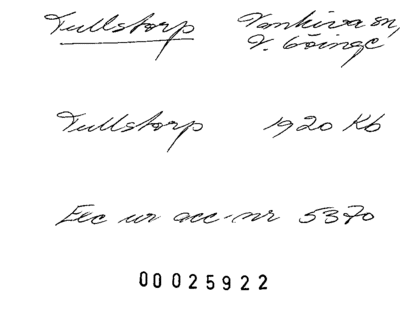 Tullstorp Vankiva sn,
V. Göinge
Tullstorp 1920 Kb
Exc ur acc-nr 5370
00025922